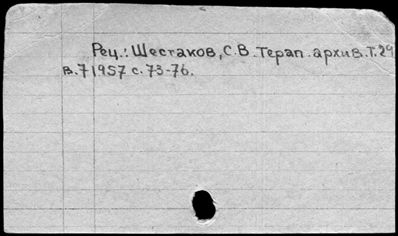 Рец.: Шестаков, С.В. Терап. архив. Т. 29
в. 7 1957 с. 73-76.